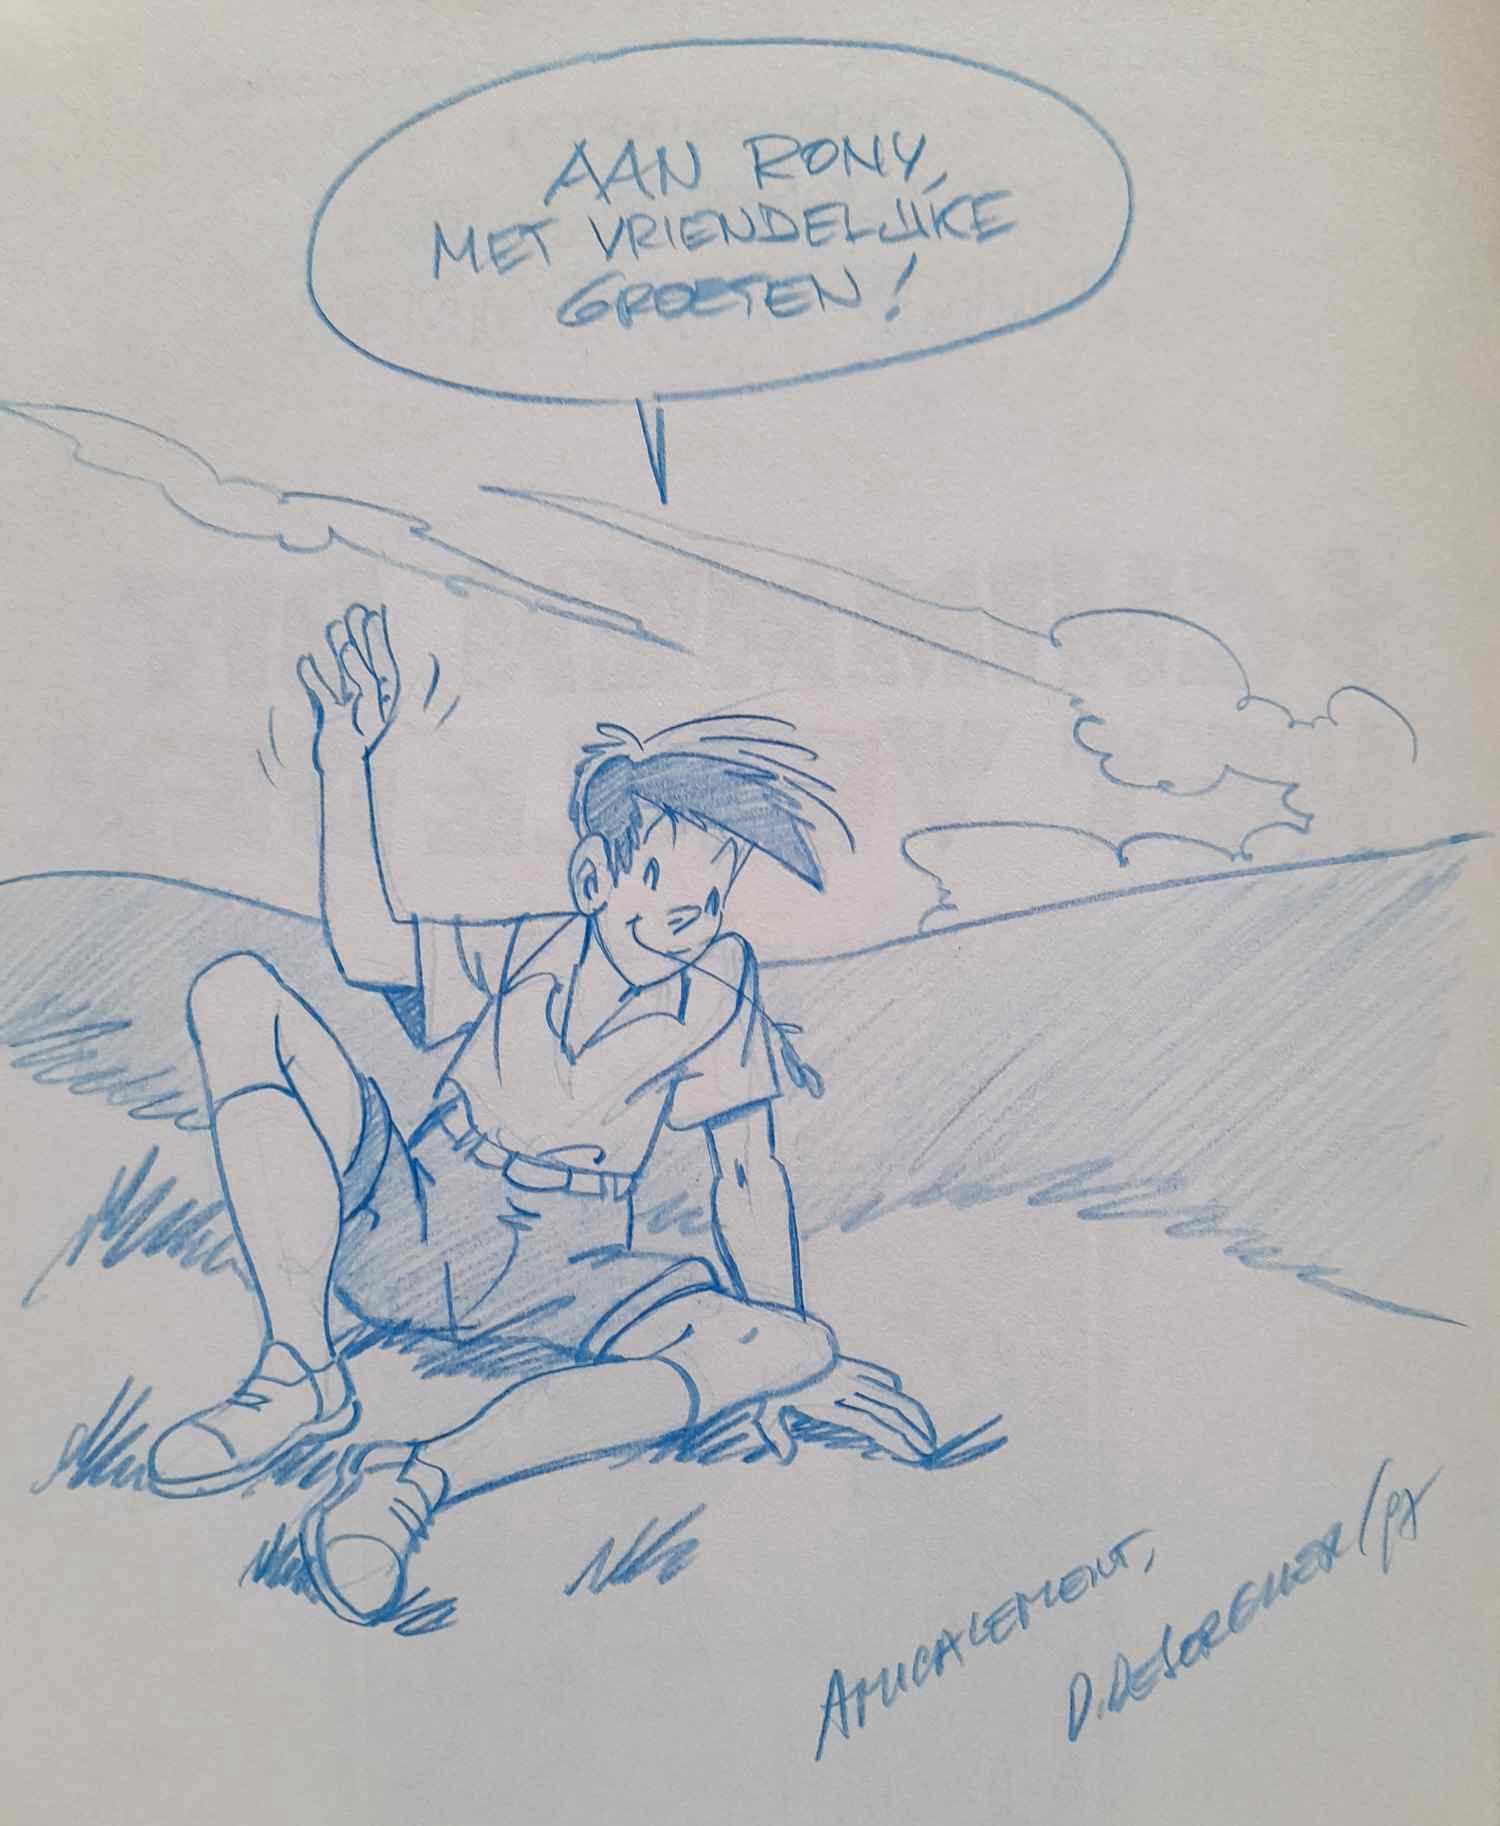 AAN RONY,
MET VRIENDELIJKE
GROETEN!
AMICALEMENT,
D. DESORGHER